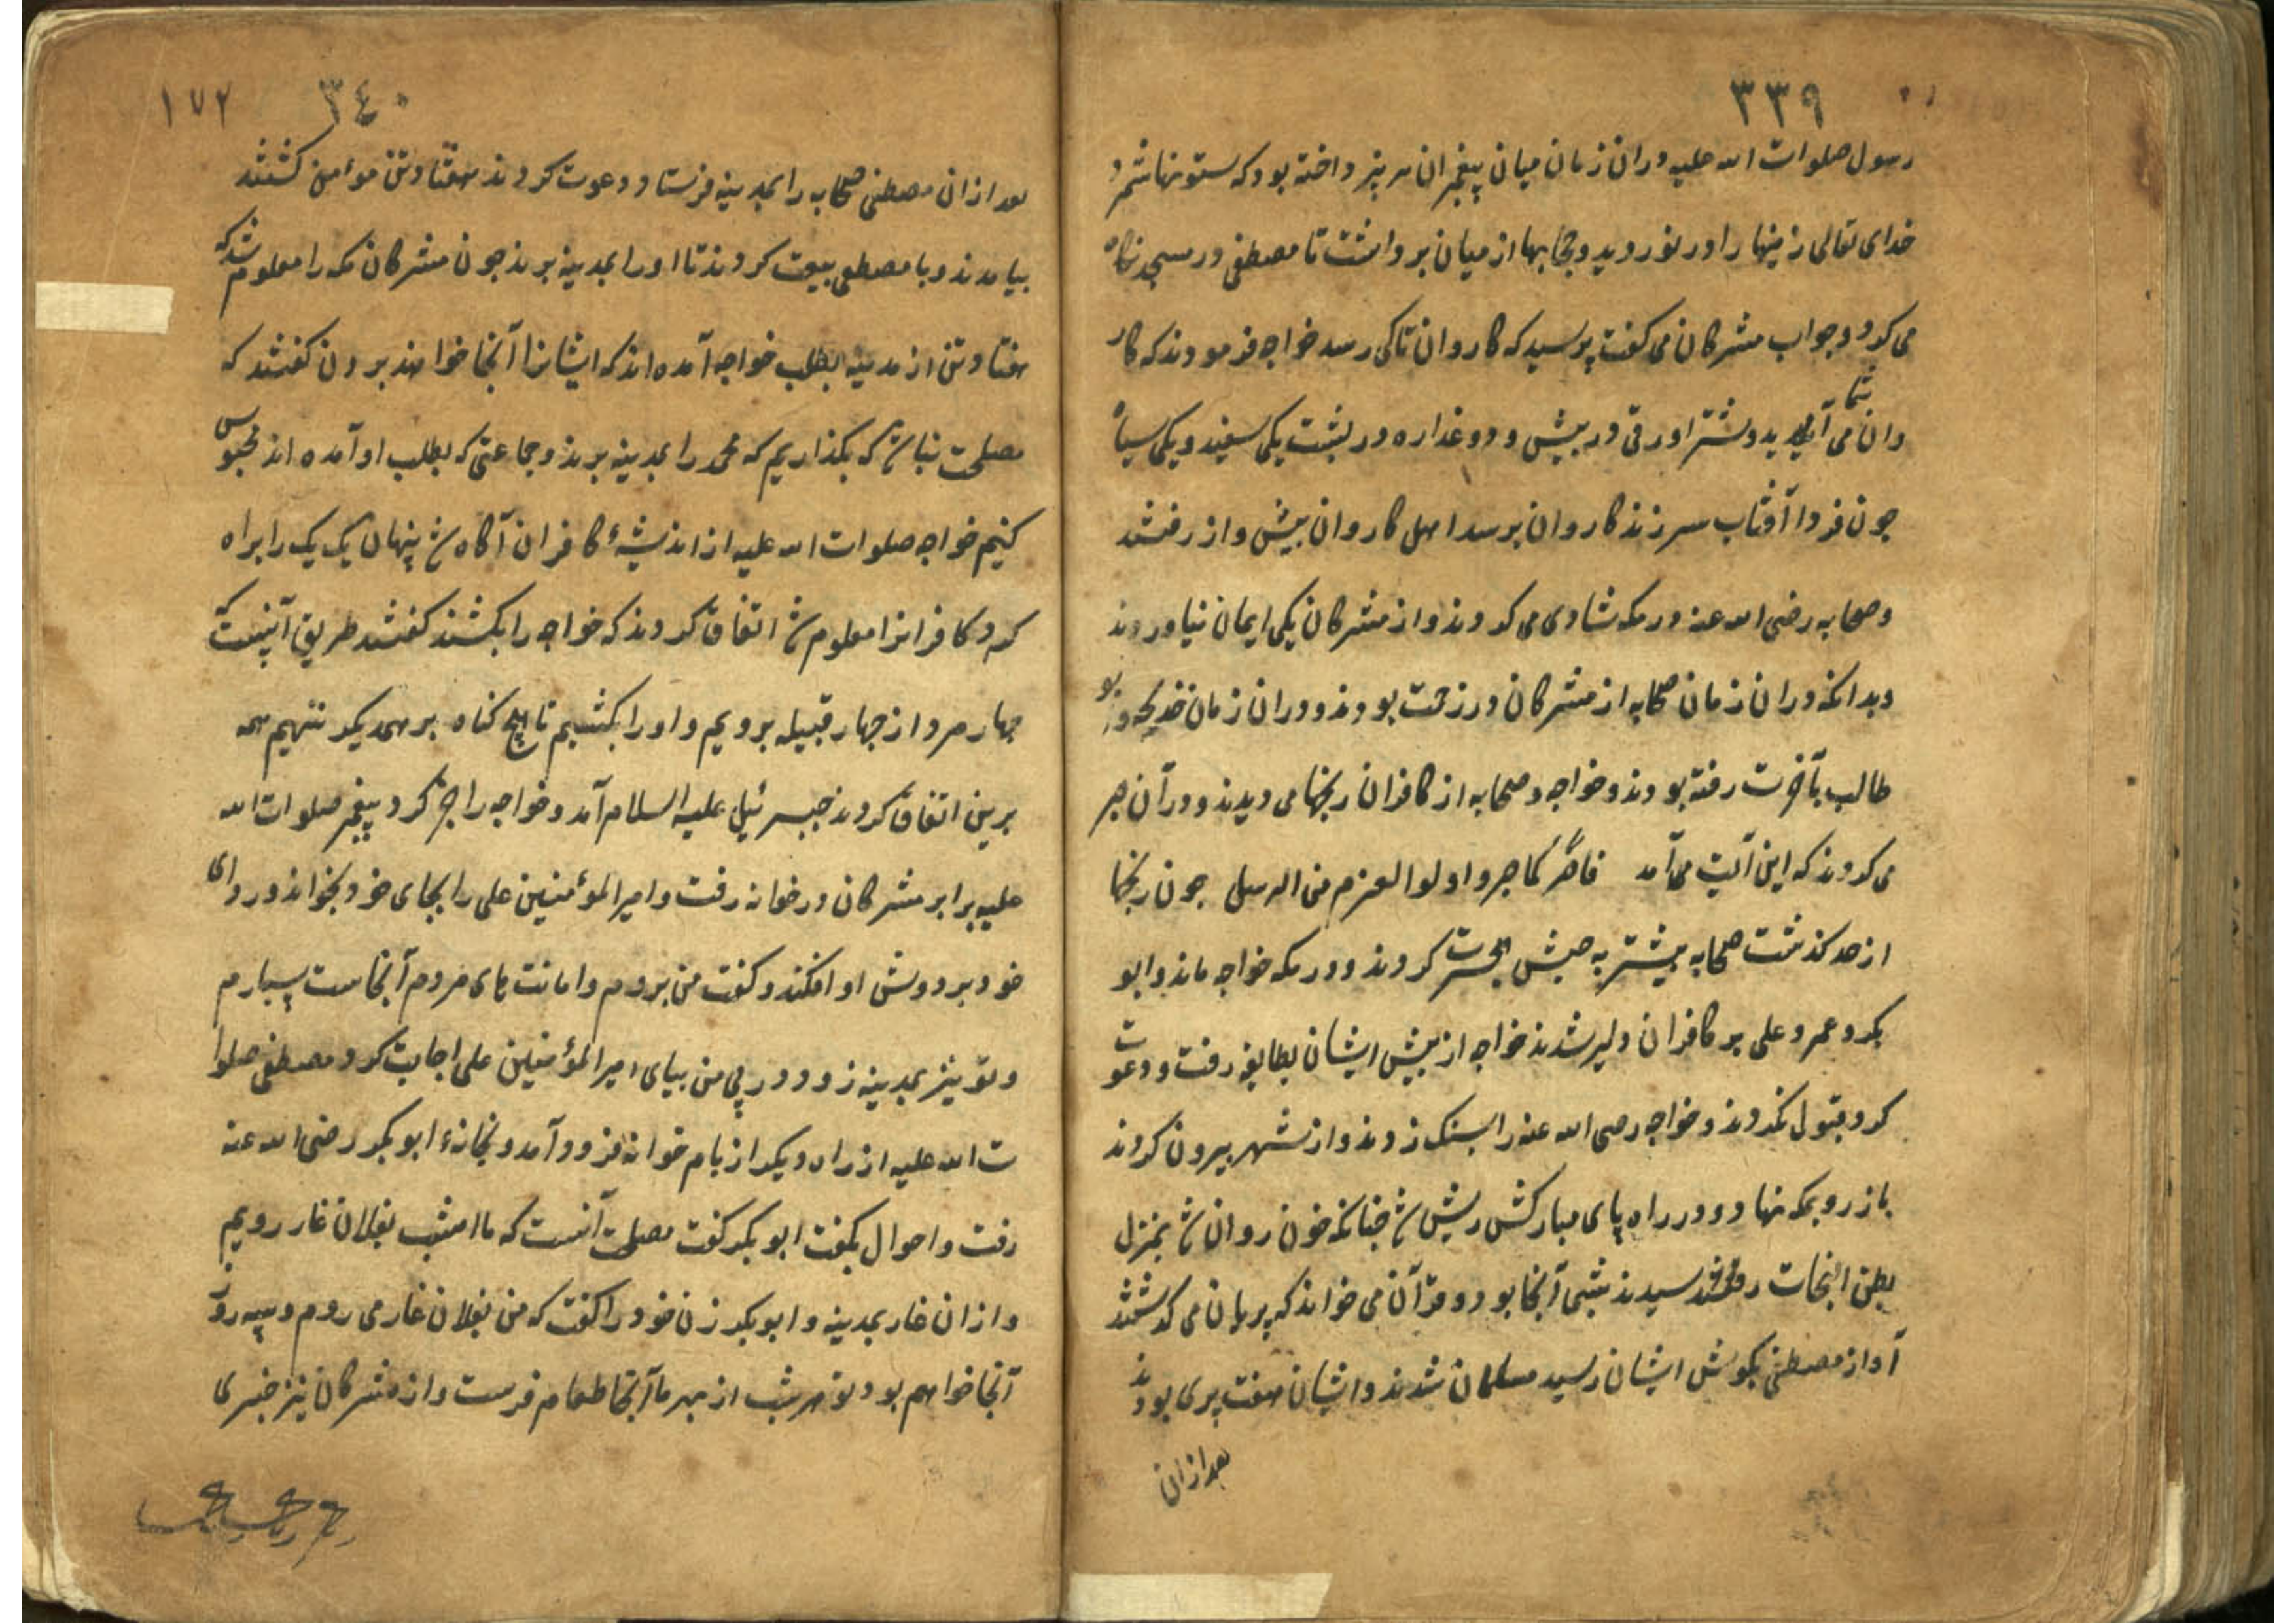 ٣٣٩
رسول صلوات الله علیه در ان زمان میان پیغمبران سر بر داخته بود که ستونها شمرد
خدای تعالی زمینها را در نوردید و حجابها از میان بر داشت تا مصطفی در مسجد نکاه
می کرد و جواب مشرکان می کفت پرسید که کاروان تا کی رسد خواجه فرمودند که کار
وان شما می آید و شتر اورقی در پیش و دو غداره در پشت یکی سفید و یکی سیاه
جون فردا آفتاب سر زند کاروان برسد اهل کاروان پیش واز رفتند
و صحابه رضی الله عنه در مکه شادی می کردند و از مشرکان یکی ایمان نیاوردند
و بدانکه در ان زمان صحابه از مشرکان در زحمت بودند و در ان زمان خدیجه و ابو
طالب بآخرت رفته بودند و خواجه و صحابه از کافران رنجها می دیدند و در آن صبر
می کردند که این آیت می آمد فاصبر کما صبر و اولوا العزم من الرسل جون رنجها
از حد کذشت صحابه بیشتر به حبش هجرت کردند و در مکه خواجه ماند و ابو
بکر و عمر و علی بر کافران دلیر شدند خواجه از پیش ایشان بطایفه رفت و دعوت
کرد قبول نکردند و خواجه رضی الله عنه را بسنک زدند و از شهر بیرون کردند
باز رو بمکه نهاد و در راه پای مبارکش ریش شد جنانکه خون روان شد بمنزل
بطن النجات رسیدند شبی آنجا بود و قرآن می خواند که پریان می کذشتند
آواز مصطفی بکوش ایشان رسید مسلمان شدند و ایشان هفت پری بودند
بعد ازان
١٧٢ ٣٤٠
بعد ازان مصطفی صحابه را بمدینه فرستاد و دعوت کردند هفتاد تن موءمن کشتند
بیامدند و با مصطفی بیعت کردند تا اورا بمدینه برند جون مشرکان مکه را معلوم شد که
هفتاد تن از مدینه بطلب خواجه آمده اند که ایشانرا آنجا خواهند بردن کفتند که
مصلحت نباشد که بکذاریم که محمد را بمدینه برند و جماعتی که بطلب او آمده اند محبوس
کنیم خواجه صلوات الله علیه از اندیشهٔ کافران آکاه شد پنهان یک یک را براه
کرد و کافرانرا معلوم شد اتفاق کردند که خواجه را بکشند کفتند طریق آنست که
جهار مرد از جهار قبیله برویم و اورا بکشیم تا هیج کناه بر همدیکر ننهیم همه
برین اتفاق کردند جبرئیل علیه السلام آمد و خواجه را خبر کرد پیغمبر صلوات الله
علیه برابر مشرکان در خوانه رفت و امیر الموءمنین علی را بجای خود بخواند و ردای
خود بر دوش او افکند و کفت من بروم و امانت های مردم آنجاست بسپارم
و تو نیز بمدینه زود در پی من بیای امیر الموءمنین علی اجابت کرد و مصطفی صلوا
ت الله علیه از راه دیکر از بام خوانه فرود آمد و بخانهء ابو بکر رضی الله عنه
رفت و احوال بکفت ابو بکر کفت مصلحت آنست که ما امشب بفلان غار رویم
و از ان غار بمدینه و ابو بکر زن خود را کفت که من بفلان غار می روم و سه روز
آنجا خواهم بود تو هر شب از بهر ما آنجا طعام فرست و از مشرکان نیز خبری